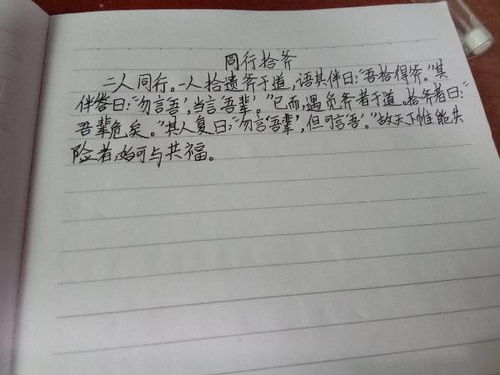 同行拾斧
二人同行。一人拾遗斧于道,语其伴曰:“吾拾得斧。”其
伴答曰:“勿言‘吾’,当言‘吾辈’”已而,遇觅斧者于道。拾斧者曰:“
吾辈危矣。”其人复曰:“勿言‘吾辈’,但可言‘吾’。”故天下惟能共
险者,始可与共福。